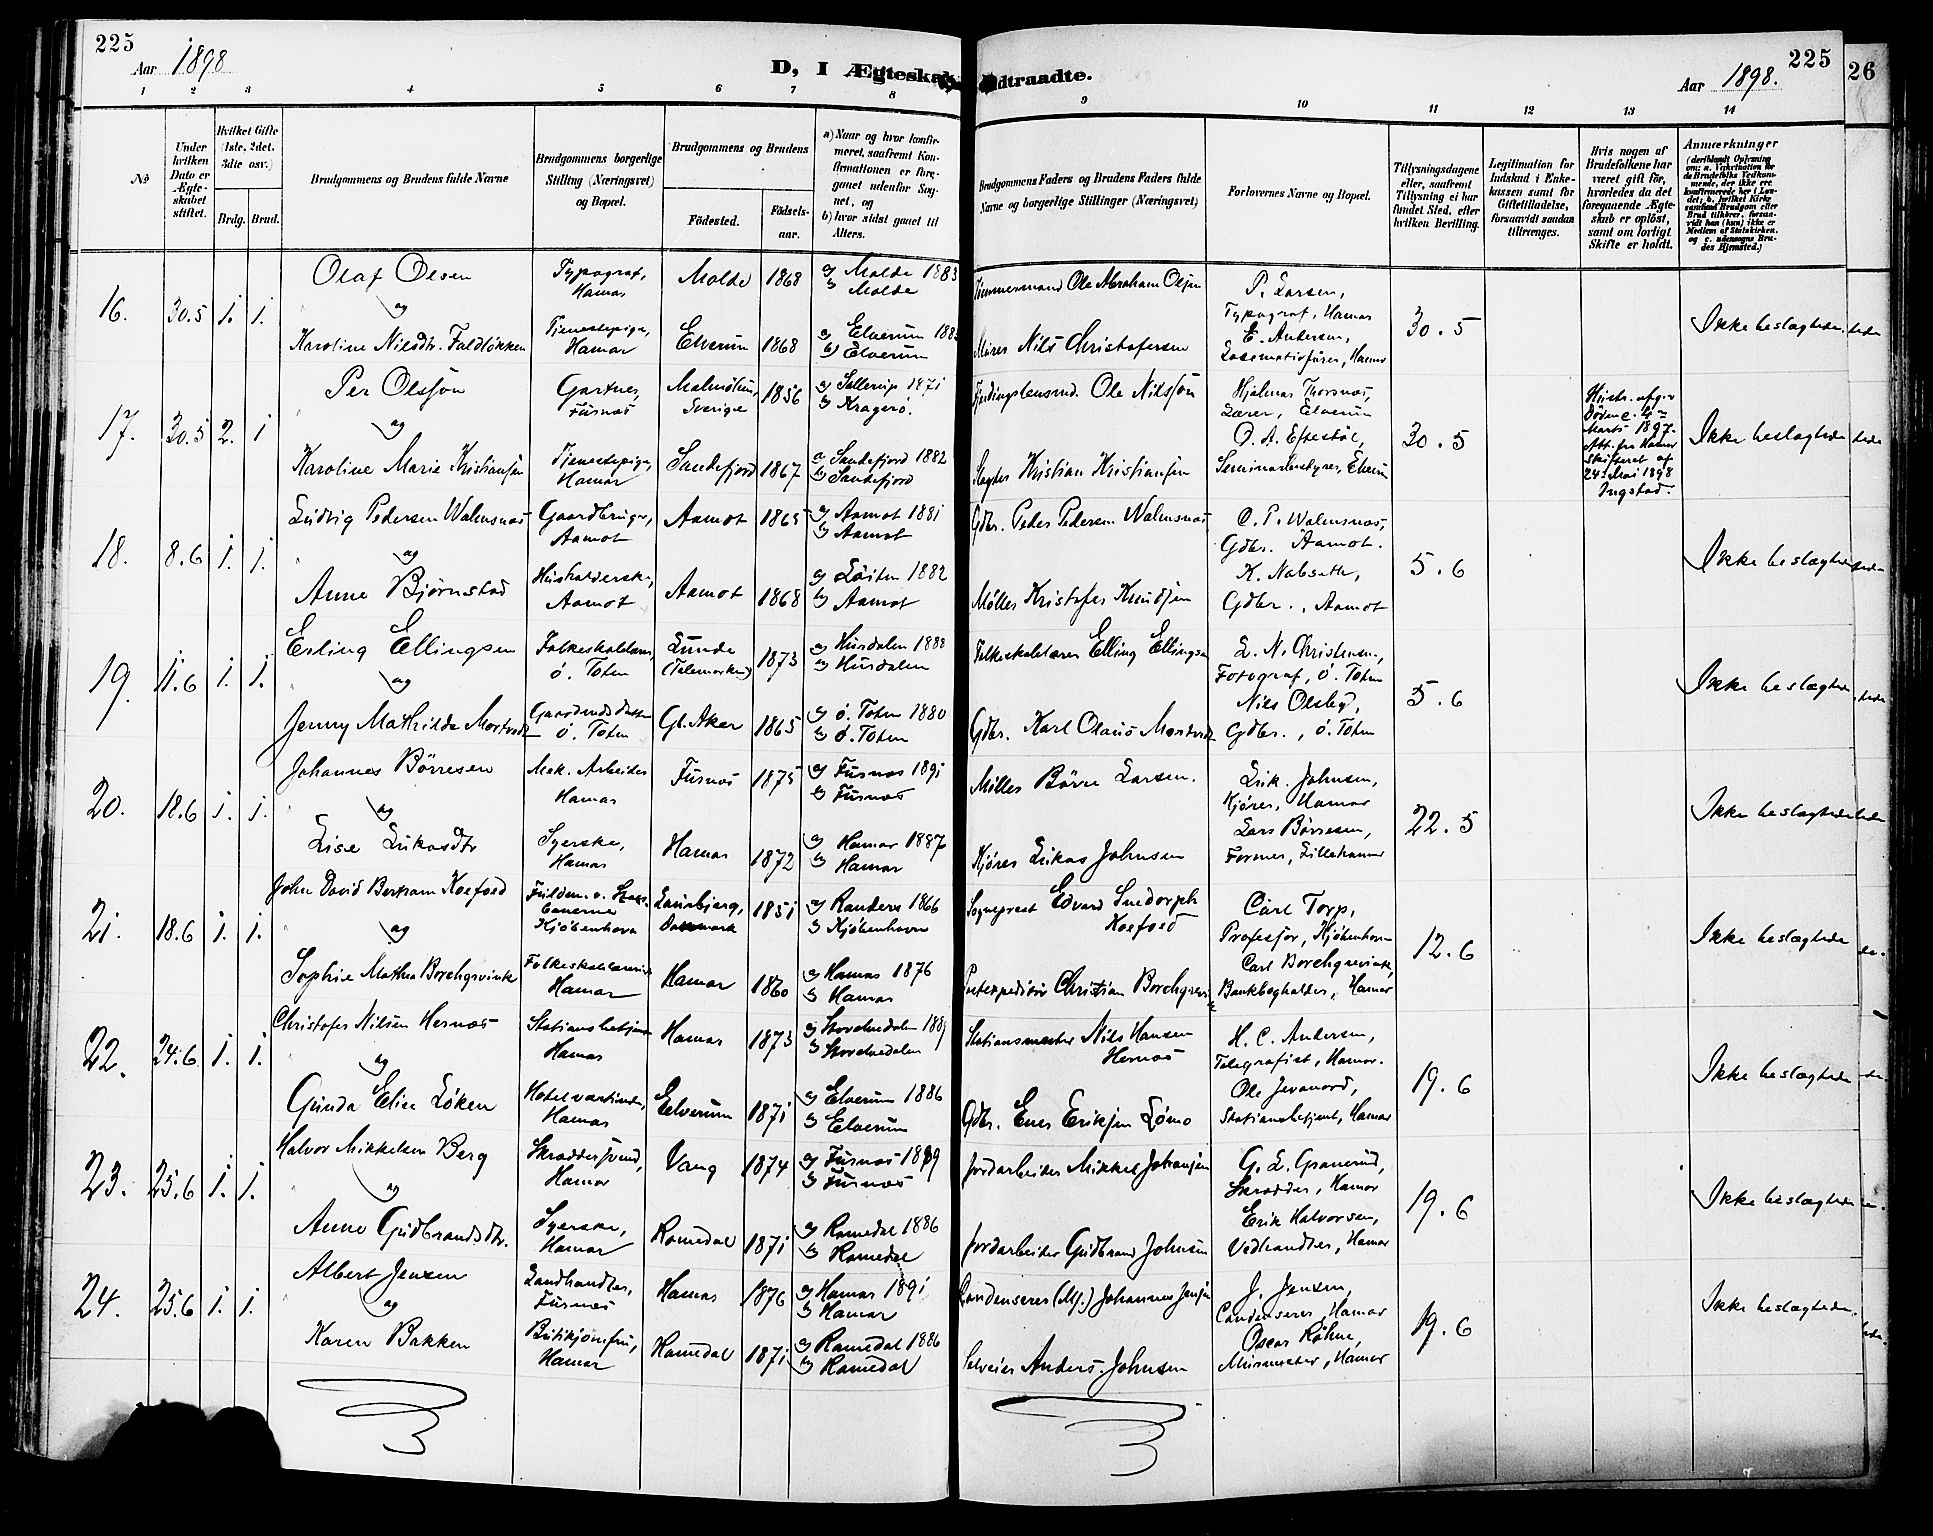 225
Aar 1898
D, I Ægteskab Indtraadte.
225
Aar 1898.
26
1 2 3 4 5 6 7 8 9 10 11 12 13 14
№
Under hvilken Dato er Ægteskabet stiftet.
Hvilket Gifte (1ste, 2det, 3dte osv.)
Brdg. Brud.
Brudgommens og Brudens fulde Navne
Brudgommens borgerlige Stilling (Næringsvei) og Bopæl.
Brudgommens og Brudens
Fødested.
Fødselsaar.
a) Naar og hvor konfirmeret, saafremt Konfirmationen er foregaaet udenfor Sognet, og
b) hvor sidst gaaet til Alters.
Brudgommens Faders og Brudens Faders fulde Navne og borgerlige Stillinger (Næringsvei)
Forlovernes Navne og Bopæl.
Tillysningsdagene eller, saafremt Tillysning ei har fundet Sted, efter hvilken Bevilling.
Legitimation for Indskud i Enkekassen samt for Giftetilladelse, forsaavidt saadan tiltrænges.
Hvis nogen af Brudefolkene har været gift før, hvorledes da det foregaaende Ægteskab er opløst, samt om lovligt Skifte er holdt.
Anmærkninger
16. 30.5 1. 1.
Olaf Olsen
Typograf, Hamar
Molde 1868
a) Molde 1883
b) Molde
Tømmermand Ole Abraham Olsen
P. Larsen,
Typograf, Hamar
30.5
Ikke beslægtede
og
Karoline Nilsdtr. Faldløkken
Tjenestepige, Hamar
Elverum 1868
a) Elverum 1883
b) Elverum
Murer Nils Christofersen
E. Andersen,
Locomotivfører, Hamar
17. 30.5 2. 1
Per Olsson
Gartner, Furnes
Malmøhus, Sverige 1856
a) Sallerup 1871
b) Kragerø.
Ole Nilsson
Hjalmar Thorsnæs,
Lærer, Elverum
30.5
Marts 1897.
24. Mai 1898
Ingstad.
Ikke beslægtede
og
Karoline Marie Kristiansen
Tjenestepige, Hamar
Sandefjord 1867
a) Sandefjord 1882
b) Sandefjord
Slagter Kristian Kristiansen
O. A. Eftestøl,
Seminariebestyrer, Elverum
18. 8.6 1. 1.
Ludvig Pedersen Walmsnæs
Gaardbruger, Aamot
Aamot 1865
a) Aamot 1881
b) Aamot
Gdbr. Peder Pedersen Walmsnæs
O. P. Walmsnæs,
Gdbr. Aamot.
5.6
Ikke beslægtede
og
Anne Bjørnstad
Husholderske, Aamot
Aamot 1868
a) Løiten 1882
b) Aamot
Møller Kristofer Knudsen
K. Nabseth,
Gdbr., Aamot
19. 11.6 1. 1.
Erling Ellingsen
Folkeskolelærer, Ø. Toten
Lunde (Telemarken) 1873
a) Hurdalen 1888
b) Hurdalen
Folkeskolelærer Elling Ellingsen
L. N. Christensen,
Fotograf, Ø. Toten
5.6
Ikke beslægtede
og
Jenny Mathilde Mortvedt
Gaardmandsdatter Ø. Toten
Gl. Aker 1865
a) Ø. Toten 1880
b) Ø. Toten
Gdbr. Karl Olaus Mortvedt
Nils Olsby,
Gdbr., Ø. Toten
20. 18.6 1. 1.
Johannes Børresen
Mek. Arbeider Hamar
Furnes 1875
a) Furnes 1891
b) Furnes
Møller Børre Larsen.
Erik Johnsen,
Kjører, Hamar
22.5
Ikke beslægtede
og
Lise Lukasdtr
Syerske, Hamar
Hamar 1872
a) Hamar 1887
b) Hamar
Kjører Lukas Johnsen
Lars Børresen,
Former, Lillehammer
21. 18.6 1. 1.
John David Bertram Koefoed
Fuldm. v. Stats banerne Kjøbenhavn
Laurbjerg, Danmark 1851
a) Randers 1866
b) Kjøbenhavn
Sogneprest Edvard Snedorph Koefoed
Carl Torp,
Professor, Kjøbenhavn
12.6
Ikke beslægtede
og
Sophie Mathea Borchgrevink
Folkeskolelærerinde Hamar
Hamar 1860
a) Hamar 1876
b) Hamar
Postexpeditør Christian Borchgrevink
Carl Borchgrevink,
Bankbogholder, Hamar
22. 24.6 1. 1.
Christofer Nilsen Hernæs
Stationsbetjent Hamar
Hamar 1873
a) Storelvedalen 1889
b) Storelvedalen
Stationsmester Nils Hansen Hernæs
H. C. Andersen,
Telegrafist, Hamar.
19.6
Ikke beslægtede
og
Gunda Elise Løken
Hotelværtinde, Hamar
Elverum 1871
a) Elverum 1886
b) Elverum
Gdbr. Ener Eriksen Lømo
Ole Jevanord,
Stationsbetjent, Hamar
23. 25.6 1. 1.
Halvor Mikkelsen Berg
Skræddersvend, Hamar
Vang 1874
a) Furnes 1889
b) Furnes
Jordarbeider Mikkel Johansen
G. L. Granerud,
Skrædder, Hamar
19.6
Ikke beslægtede
og
Anne Gudbrandsdtr.
Syerske, Hamar
Romedal 1871
a) Romedal 1886
b) Romedal
Jordarbeider Gudbrand Johnsen
Erik Halvorsen,
Vedhandler, Hamar
24. 25.6 1. 1.
Albert Jensen
Landhandler, Furnes
Hamar 1876
a) Hamar 1891
b) Hamar
Condenserer (Mj.) Johannes Jensen
J. Jensen,
Condenserer, Hamar
19.6
Ikke beslægtede.
og
Karen Bakken
Butikjomfru, Hamar
Romedal 1871
a) Romedal 1886
b) Romedal
Selveier Anders Johnsen
Oscar Røhne,
Murmester, Hamar